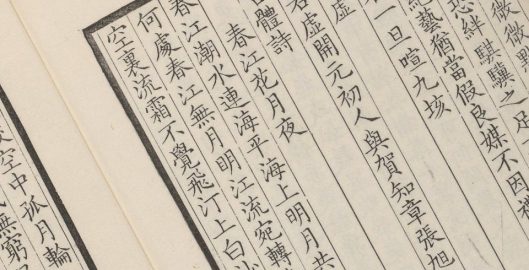 微微
恐絆騏驥之足
藝猶當假良媒不因
一旦喧九垓
虛
若虛開元初人與賀知章張旭
古體詩
春江花月夜
春江潮水連海平海上明月共
何處春江無月明江流宛轉
空裏流霜不覺飛汀上白沙
空中孤月輪
無窮